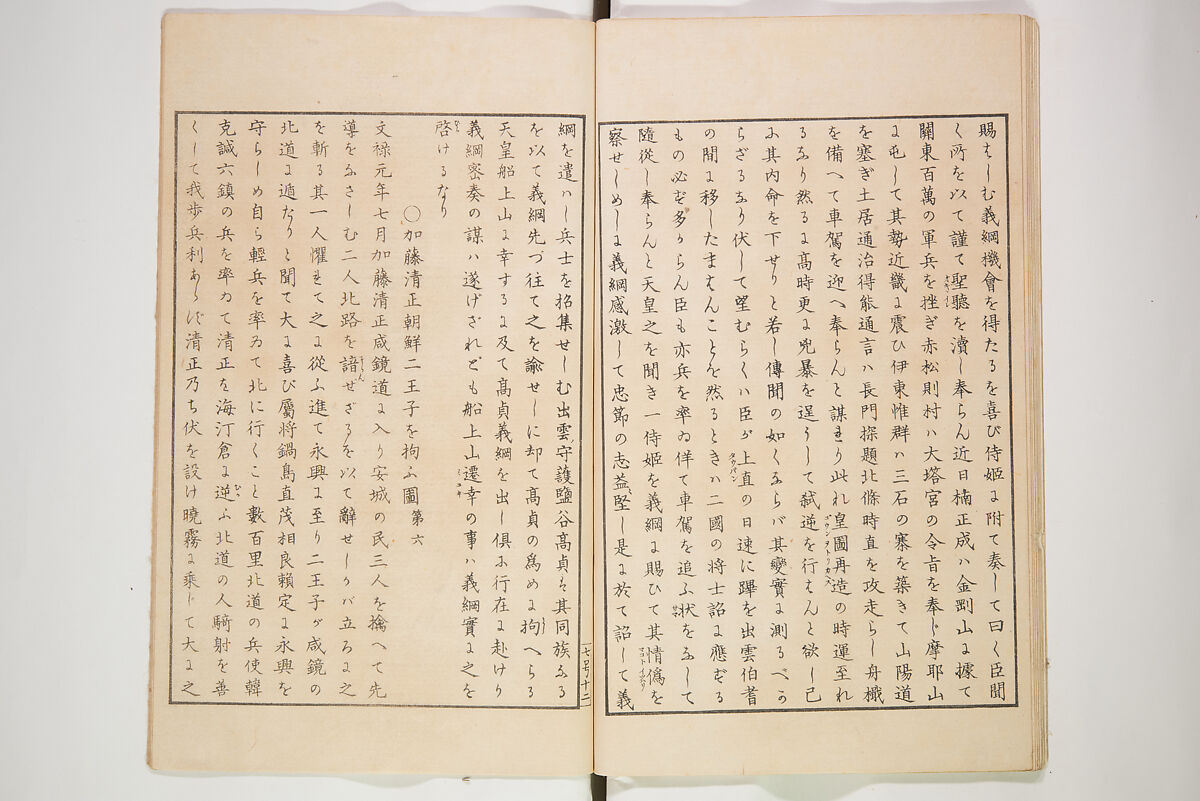 賜はしむ義綱機會を得たるを喜び侍姫に附て奏して曰く臣聞
く所を以て謹て聖聽を瀆し奉らん近日楠正成ハ金剛山に據て
關東百萬の軍兵を挫ぎ赤松則村ハ大塔宮の令旨を奉じ摩耶山
に屯して其勢近畿に震ひ伊東惟群ハ三石の寨を築きて山陽道
を塞ぎ土居通治得能通言ハ長門探題北條時直を攻走らし舟檝
を備へて車駕を迎へ奉らんと謀れり此れ皇圖再造の時運至れ
るなり然るに髙時更に兇暴を逞うして弑逆を行はんと欲し已
に其内命を下せりと若し傳聞の如くならバ其變實に測るべか
らざるなり伏して望むらくハ臣が上直の日速に蹕を出雲伯耆
の間に移したまはんことを然るときハ二國の将士詔に應ずる
もの必ず多からん臣も亦兵を率ゐ佯て車駕を追ふ状をなして
隨從し奉らんと天皇之を聞き一侍姫を義綱に賜ひて其情僞を
察せしめしに義綱感激して忠節の志益堅し是に於て詔して義
綱を遣ハし兵士を招集せしむ出雲守護鹽谷髙貞は其同族なる
を以て義綱先づ往て之を諭せしに却て髙貞の爲めに拘へらる
天皇船上山に幸するに及て髙貞義綱を出し倶に行在に赴けり
義綱密奏の謀ハ遂げざれども船上山遷幸の事ハ義綱實に之を
啓けるなり
〇加藤清正朝鮮二王子を拘ふ圖 第六
文禄元年七月加藤清正咸鏡道に入り安城の民三人を擒へて先
導をなさしむ二人北路を諳ぜざるを以て辭せしかバ立ろに之
を斬る其一人懼れて之に從ふ進て永興に至り二王子が咸鏡の
北道に遁たりと聞て大に喜び屬将鍋島直茂相良頼定に永興を
守らしめ自ら輕兵を率ゐて北に行くこと數百里北道の兵使韓
克諴六鎮の兵を率ゐて清正を海汀倉に逆ふ北道の人騎射を善
くして我歩兵利あらず清正乃ち伏を設け曉霧に乘じて大に之
七号十二